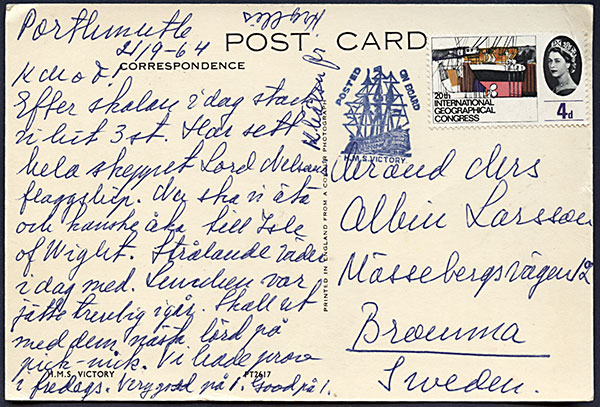 Porthmuthe
21/9-64
POST CARD
CORRESPONDENCE
K mo o f!
Efter skolan i dag stack
vi hit 3 st. Har sett
hela skeppet Lord Nelsons
flaggship. Nu ska vi äta
och kanske åka till Isle
of Wight. Strålande väder
i dag med. Lunchen var
jätte trevlig igår. Skall ut
med dem nästa lörd på
pick-nick. Vi hade prov
i fredags. Very good på 1. Good på 1.
H.M.S. VICTORY
PT2617
Kram fr
PRINTED IN ENGLAND FROM A COLOUR PHOTOGRAPH
POSTED ON BOARD
H.M.S. VICTORY
20th
INTERNATIONAL
GEOGRAPHICAL
CONGRESS
4d
Albin Larsson
Mössebergsvägen 12
Bromma
Sweden.